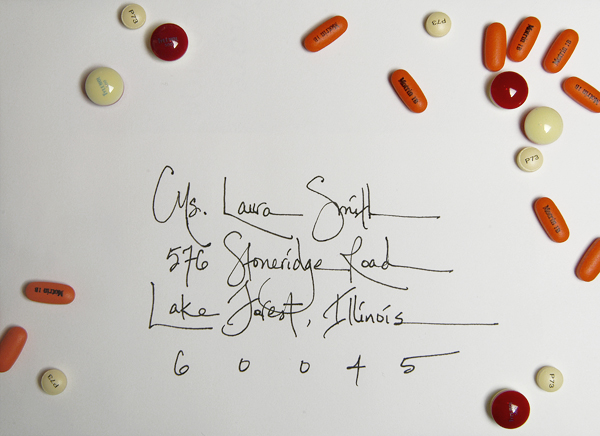 P73
P73
Motrin IB
Motrin IB
Motrin IB
Motrin IB
Motrin IB
P73
Ms. Laura Smith
Motrin IB
576 Stoneridge Road
Lake Forest, Illinois
Motrin IB
6 0 0 4 5
P73
P73